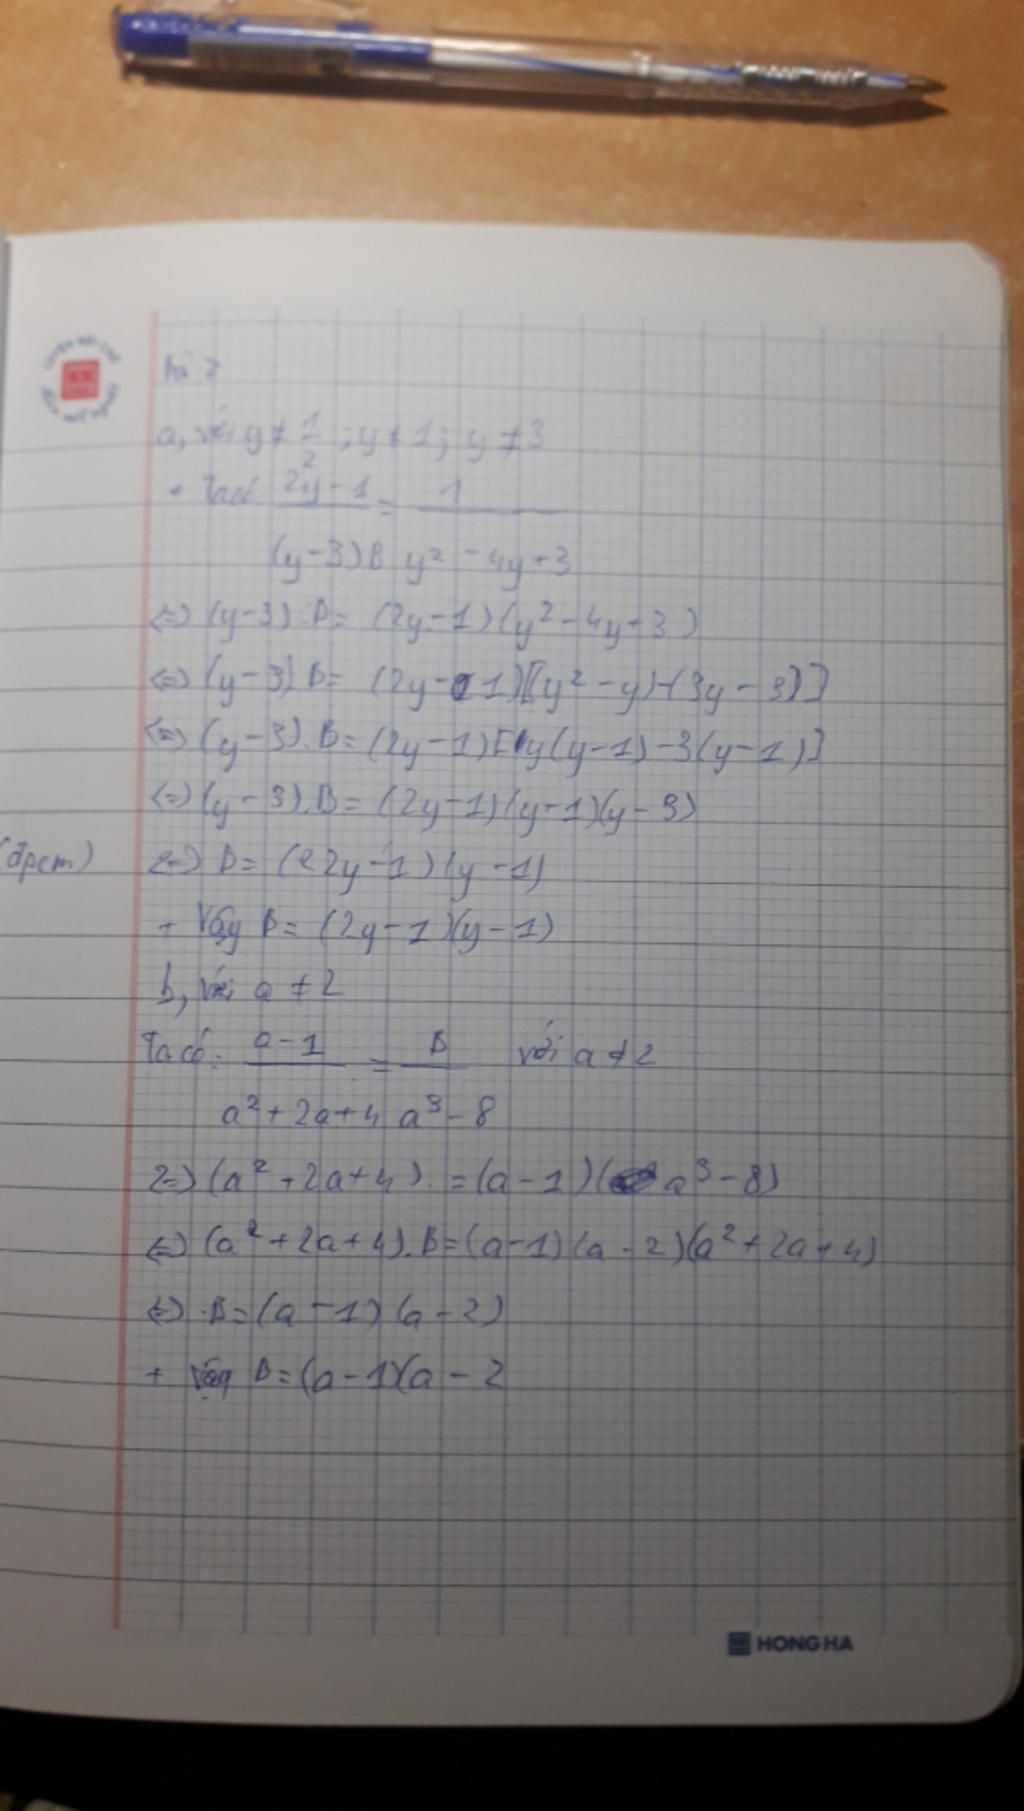 a, với y ≠ 1/2 ; y ≠ 1 ; y ≠ 3
+ Ta có 2y - 1 / (y - 3) B = 1 / y² - 4y + 3
<=> (y - 3) . B = (2y - 1) (y² - 4y + 3)
<=> (y - 3) B = (2y - 1) [(y² - y) - (3y - 3)]
<=> (y - 3) . B = (2y - 1) [y(y - 1) - 3(y - 1)]
<=> (y - 3) . B = (2y - 1) (y - 1)(y - 3)
(đpcm) <=> B = (2y - 1) (y - 1)
+ Vậy B = (2y - 1)(y - 1)
b, Với a ≠ 2
Ta có: a - 1 / a² + 2a + 4 = B / a³ - 8 với a ≠ 2
<=> (a² + 2a + 4) . = (a - 1) (a³ - 8)
<=> (a² + 2a + 4) . B = (a - 1) (a - 2)(a² + 2a + 4)
<=> B = (a - 1) (a - 2)
+ Vậy B = (a - 1)(a - 2
HONG HA